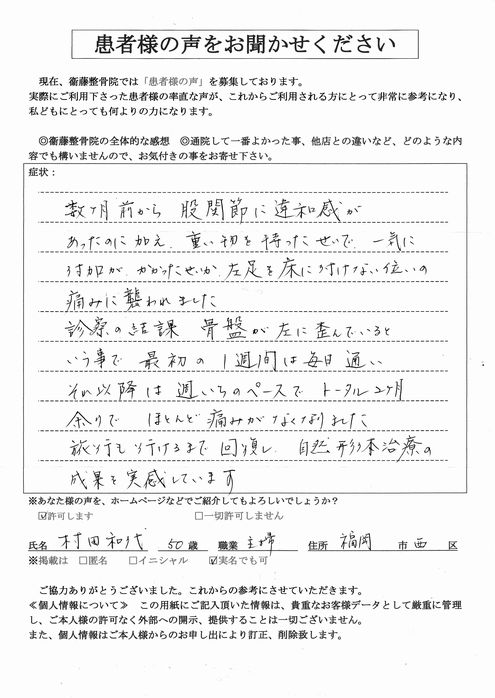 患者様の声をお聞かせください
現在、衛藤整骨院では「患者様の声」を募集しております。
実際にご利用下さった患者様の率直な声が、これからご利用される方にとって非常に参考になり、
私どもにとっても何よりの力になります。
◎衛藤整骨院の全体的な感想　◎通院して一番よかった事、他店との違いなど、どのような内
容でも構いませんので、お気付きの事をお寄せ下さい。
症状：
数ヶ月前から 股関節に違和感が
あったのに加え、重い物を持ったせいで、一気に
付加が かかったせいか、左足を床に付けない位いの
痛みに襲われました
診療の結課 骨盤が左に歪んでいると
いう事で 最初の 1週間は毎日通い
それ以降は 週いちのペースで トータル2ヶ月
余りで ほとんど痛みがなくなりました
旅行も行けるまで 回復し、自然形体治療の
成果を実感しています
※あなた様の声を、ホームページなどでご紹介してもよろしいでしょうか？
☑許可します　□一切許可しません
氏名 村田和代 50歳 職業 主婦 住所 福岡 市 西 区
※掲載は □匿名 □イニシャル ☑実名でも可
ご協力ありがとうございました。これからの参考にさせていただきます。
≪個人情報について≫　この用紙にご記入頂いた情報は、貴重なお客様データとして厳重に管理
し、ご本人様の許可なく外部への開示、提供することは一切ございません。
また、個人情報はご本人様からのお申し出により訂正、削除致します。